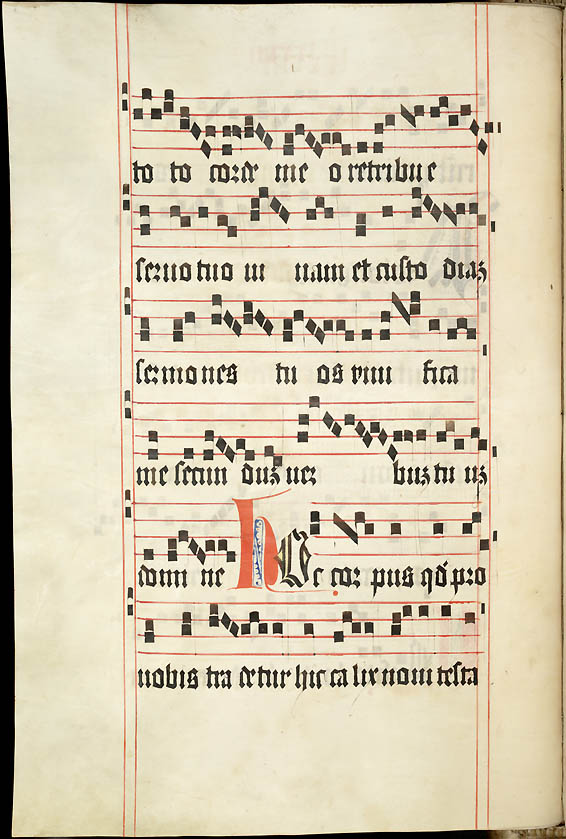 to to corde me o retribue
seruo tuo ui uam et custo diaʒ
sermones tu os viui fica
me secun duʒ uer buʒ tu uʒ
domi ne Hoc cor pus qđ pro
nobis tra detur hic ca lix noui testa